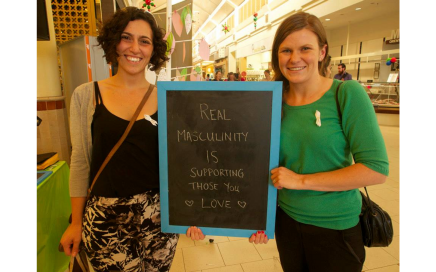 REAL
MASCULINITY
IS
SUPPORTING
THOSE YOU
♡ LOVE ♡